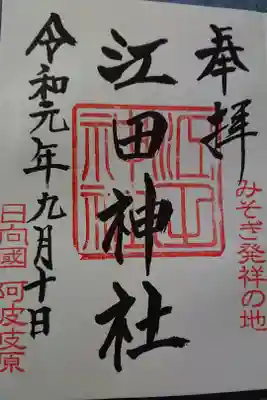 奉拝
みそぎ発祥の地
江田神社
江田神社
令和元年九月十日
日向國 阿波岐原